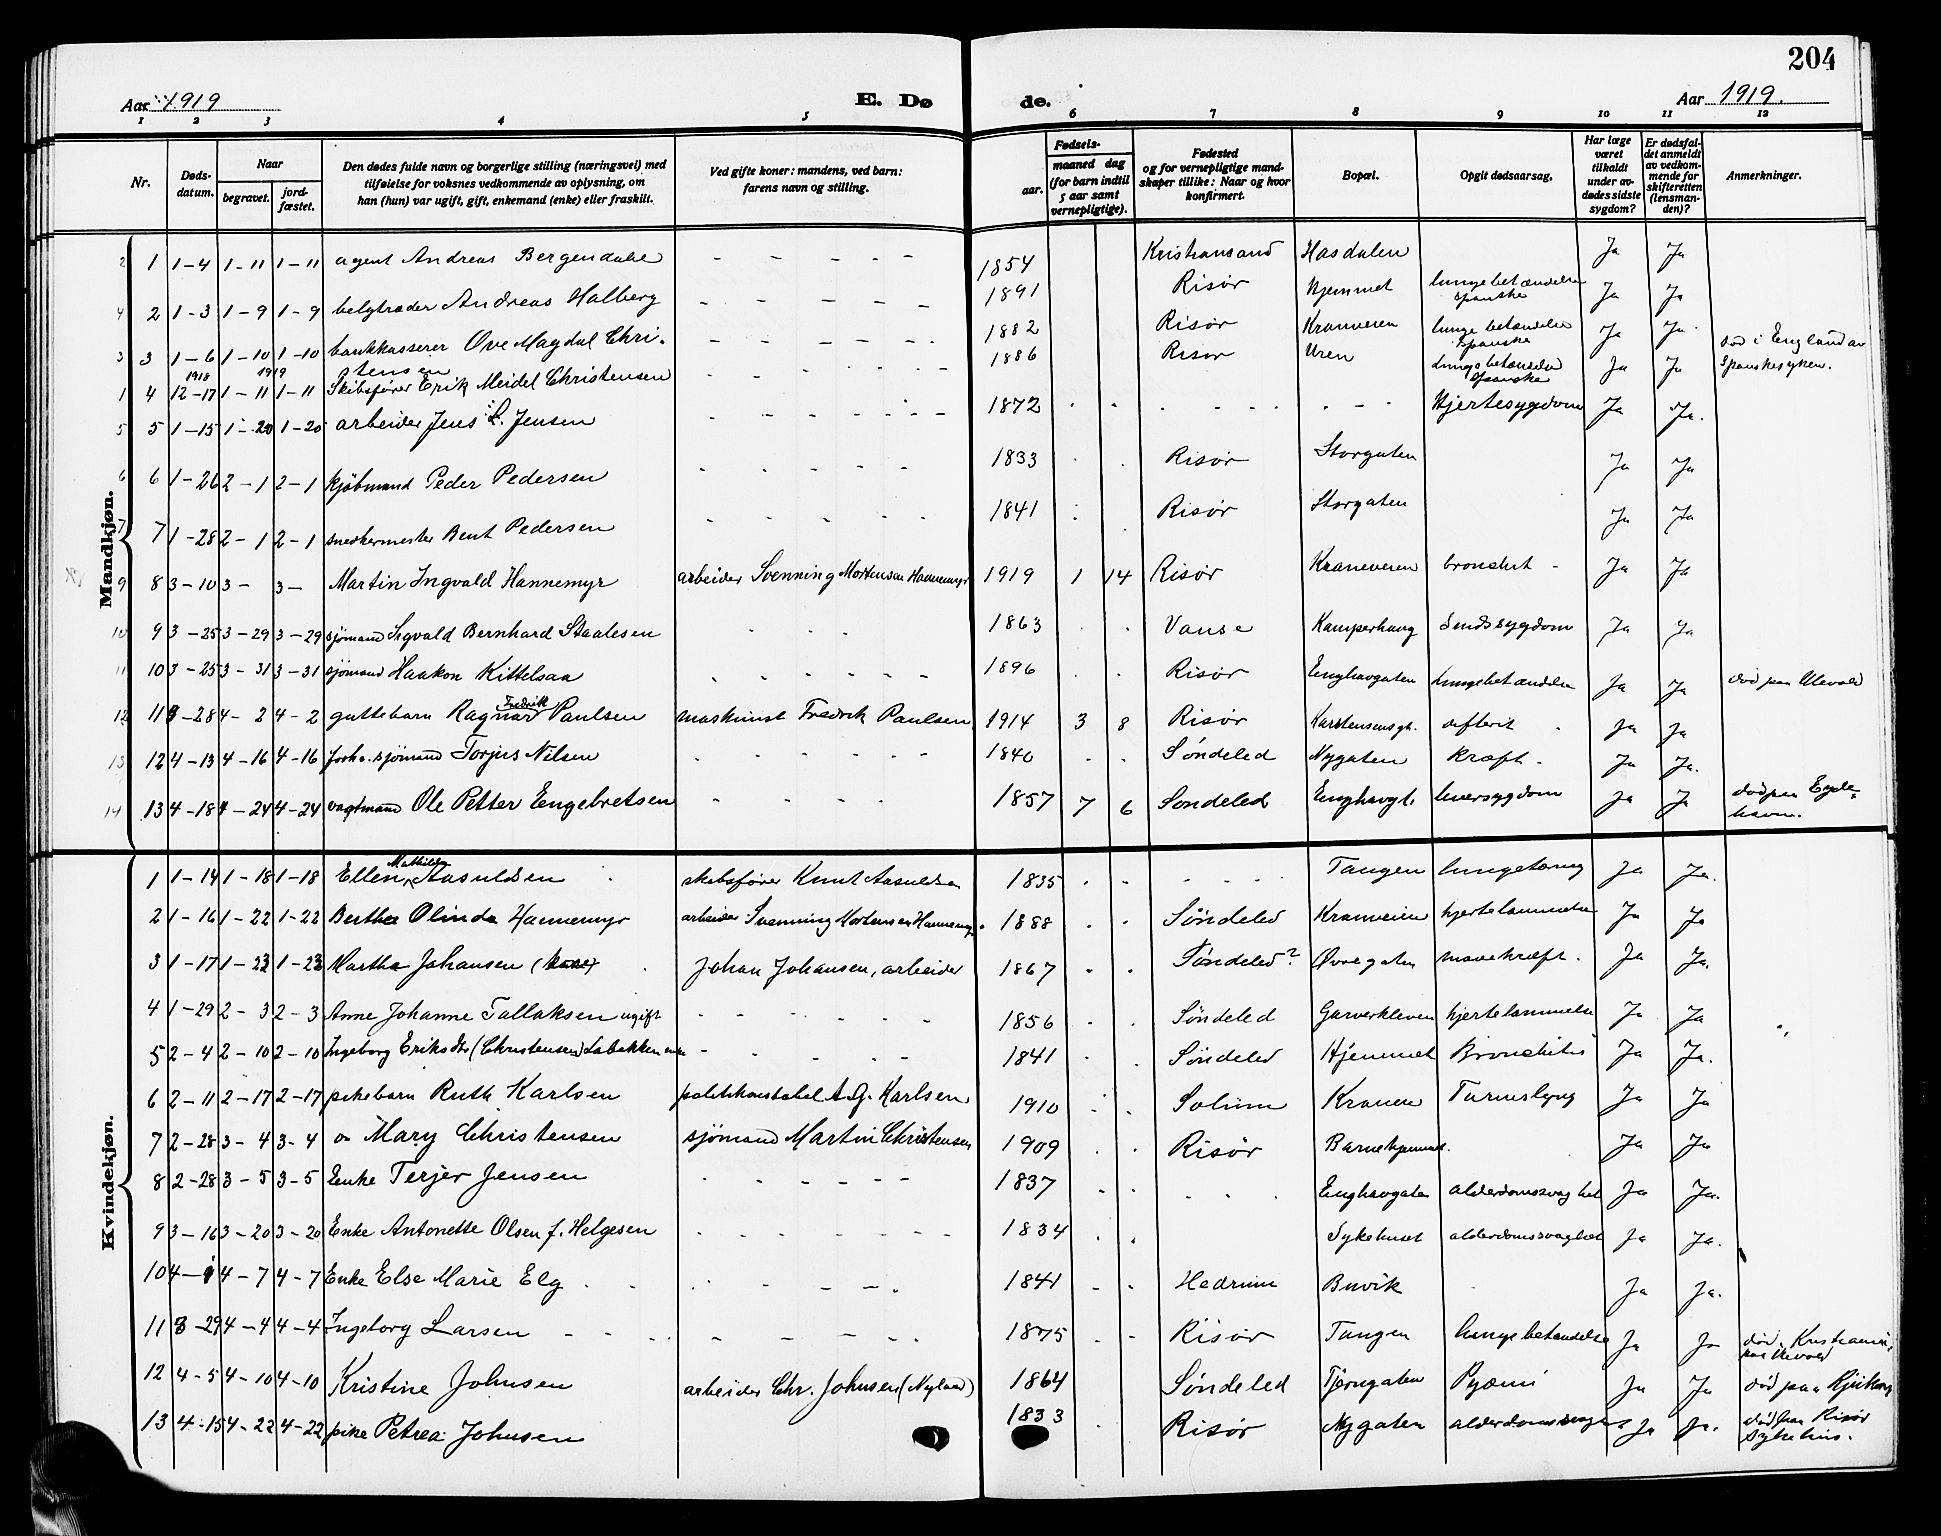 204
Aar 1919 E. Døde. Aar 1919.
1 2 3 4 5 6 7 8 9 10 11 12
Nr. Døds-datum. Naar begravet. jord-fæstet. Den dødes fulde navn og borgerlige stilling (næringsvei) med tilføielse for voksnes vedkommende av oplysning, om han (hun) var ugift, gift, enkemand (enke) eller fraskilt. Ved gifte koner: mandens, ved barn: farens navn og stilling. Fødsels- aar. maaned dag (for barn indtil 5 aar samt vernepligtige). Fødested og for vernepligtige mandskaper tillike: Naar og hvor konfirmert. Bopæl. Opgit dødsaarsag. Har læge været tilkaldt under avdødes sidste sygdom? Er dødsfaldet anmeldt av vedkommende for skifteretten (lensmanden)? Anmerkninger.
Mandkjøn.
2 1 1-4 1-11 1-11 agent Andreas Bergendahl - - - - - 1854 Kristiansand Hasdalen Ja Ja
4 2 1-3 1-9 1-9 Andreas Halberg - - - - - 1891 Risør Hjemmet lungebetændelse spanske Ja Ja
3 3 1-6 1-10 1-10 bankkasserer Ove Magdal Christensen 1882 Risør Kranveien lungebetændelse spanske Ja Ja.
1 4 1918 12-17 1919 1-11 1-11 Skibsfører Erik Meidel Christensen 1886 Risør Uren Lungebetændelse spanske Ja Ja død i England av Spanskesyken.
5 5 1-15 1-20 1-20 arbeider Jens L. Jensen 1872 Hjertesygdom Ja Ja.
6 6 1-26 2-1 2-1 kjøbmand Peder Pedersen 1833 Risør Storgaten Ja Ja
7 7 1-28 2-1 2-1 snedkermester Bent Pedersen 1841 Risør Storgaten Ja Ja
9 8 3-10 3- 3- Martin Ingvald Hannemyr arbeider Svenning Mortensen Hannemyr 1919 1 14 Risør Kraneveien bronchit - Ja Ja
10 9 3-25 3-29 3-29 sjømand Sigvald Bernhard Staalesen 1863 Vanse Kamperhaug Sindssygdom Ja Ja
11 10 3-25 3-31 3-31 sjømand Haakon Kittelsaa 1896 Risør Enghavgaten Lungebetændelse Ja Ja død paa Ulevold
12 11 3-28 4-2 4-2 guttebarn Ragnar Fredrik Paulsen maskinist Fredrik Paulsen 1914 3 8 Risør Karstensensgt. difterit Ja Ja
13 12 4-13 4-16 4-16 forh. sjømand Torjus Nilsen 1840 Søndeled Nygaten kræft - Ja Ja.
14 13 4-18 4-24 4-24 vagtmand Ole Petter Engebretsen 1857 7 6 Søndeled Enghavgt. leversygdom Ja Ja død paa Eydehavn.
Kvindekjøn.
1 1-14 1-18 1-18 Ellen Mathilde Aasuldsen skibsfører Knut Aasuldsen 1835 Tangen lungetæring Ja Ja.
2 1-16 1-22 1-22 Berthe Olinde Hannemyr arbeider Svenning Mortensen Hannemyr 1888 Søndeled Kranveien hjertelammelse Ja Ja
3 1-17 1-23 1-23 Martha Johansen (kone) Johan Johansen, arbeider 1867 Søndeled? Øvregaten mavekræft. Ja Ja.
4 1-29 2-3 2-3 Anne Johanne Tallaksen ugift 1856 Søndeled Garverkleven hjertelammelse Ja Ja
5 2-4 2-10 2-10 Ingeborg Eriksdtr (Christensen) Løbakken enke 1841 Søndeled Hjemmet Bronchitis Ja Ja.
6 2-11 2-17 2-17 pikebarn Ruth Karlsen politikonstabel A. G. Karlsen 1910 Solum Ja Ja
7 2-28 3-4 3-4 Mary Christensen sjømand Martin Christensen 1909 Risør Barnehjemmet. Ja Ja
8 2-28 3-5 3-5 Enke Terjer Jensen 1837 Enghavgaten alderdomssvaghet Ja Ja.
9 3-16 3-20 3-20 Enke Antonette Olsen f. Helgesen 1834 Sykehuset alderdomssvaghet Ja Ja.
10 4-1 4-7 4-7 Enke Else Marie Elg 1841 Hedrum Buvik Ja Ja.
11 3-29 4-4 4-4 Ingeborg Larsen 1875 Risør Tangen lungebetændelse Ja Ja død i Kristiania, paa Ulevold
12 4-5 4-10 4-10 Kristine Johnsen arbeider Chr. Johnsen (Nyland) 1864 Søndeled Tjerngaten Pyæmi Ja Ja død paa Rjukan
13 4-15 4-22 4-22 pike Petrea Johnsen 1833 Risør Nygaten Ja Ja. død paa Risør Sykehus.